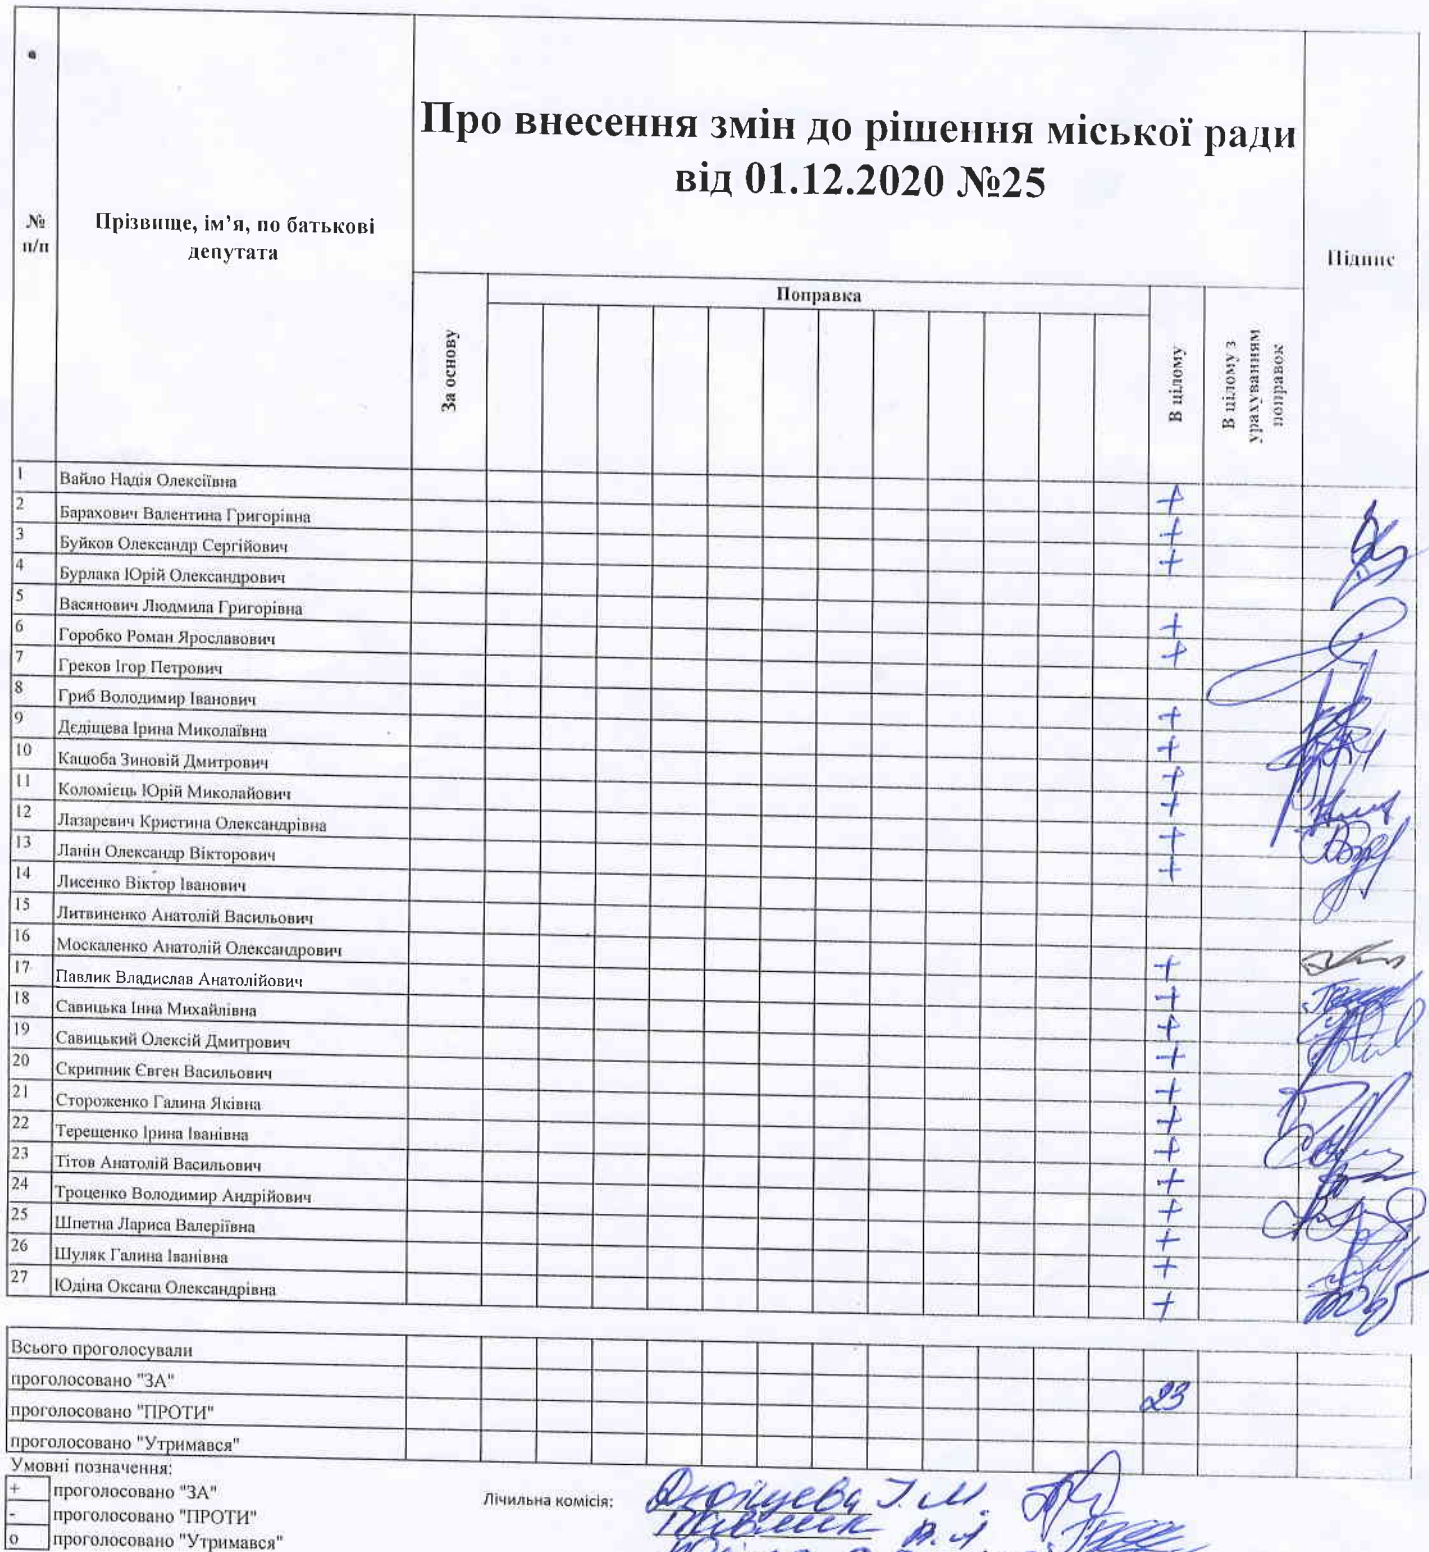 Про внесення змін до рішення міської ради
від 01.12.2020 №25
№ п/п
Прізвище, ім’я, по батькові
депутата
Підпис
За основу
Поправка
В цілому
В цілому з
урахуванням
поправок
1 Вайло Надія Олексіївна +
2 Барахович Валентина Григорівна +
3 Буйков Олександр Сергійович +
4 Бурлака Юрій Олександрович
5 Васянович Людмила Григорівна +
6 Горобко Роман Ярославович +
7 Греков Ігор Петрович
8 Гриб Володимир Іванович +
9 Дєдіщева Ірина Миколаївна +
10 Кацюба Зиновій Дмитрович +
11 Коломієць Юрій Миколайович +
12 Лазаревич Кристина Олександрівна +
13 Ланін Олександр Вікторович +
14 Лисенко Віктор Іванович
15 Литвиненко Анатолій Васильович
16 Москаленко Анатолій Олександрович +
17 Павлик Владислав Анатолійович +
18 Савицька Інна Михайлівна +
19 Савицький Олексій Дмитрович +
20 Скрипник Євген Васильович +
21 Стороженко Галина Яківна +
22 Терещенко Ірина Іванівна +
23 Тітов Анатолій Васильович +
24 Троценко Володимир Андрійович +
25 Шпетна Лариса Валеріївна +
26 Шуляк Галина Іванівна +
27 Юдіна Оксана Олександрівна +
Всього проголосували
проголосовано "ЗА" 23
проголосовано "ПРОТИ"
проголосовано "Утримався"
Умовні позначення:
+ проголосовано "ЗА"
- проголосовано "ПРОТИ"
о проголосовано "Утримався"
Лічильна комісія:
Дєдіщева І. М.
Павлик В. А